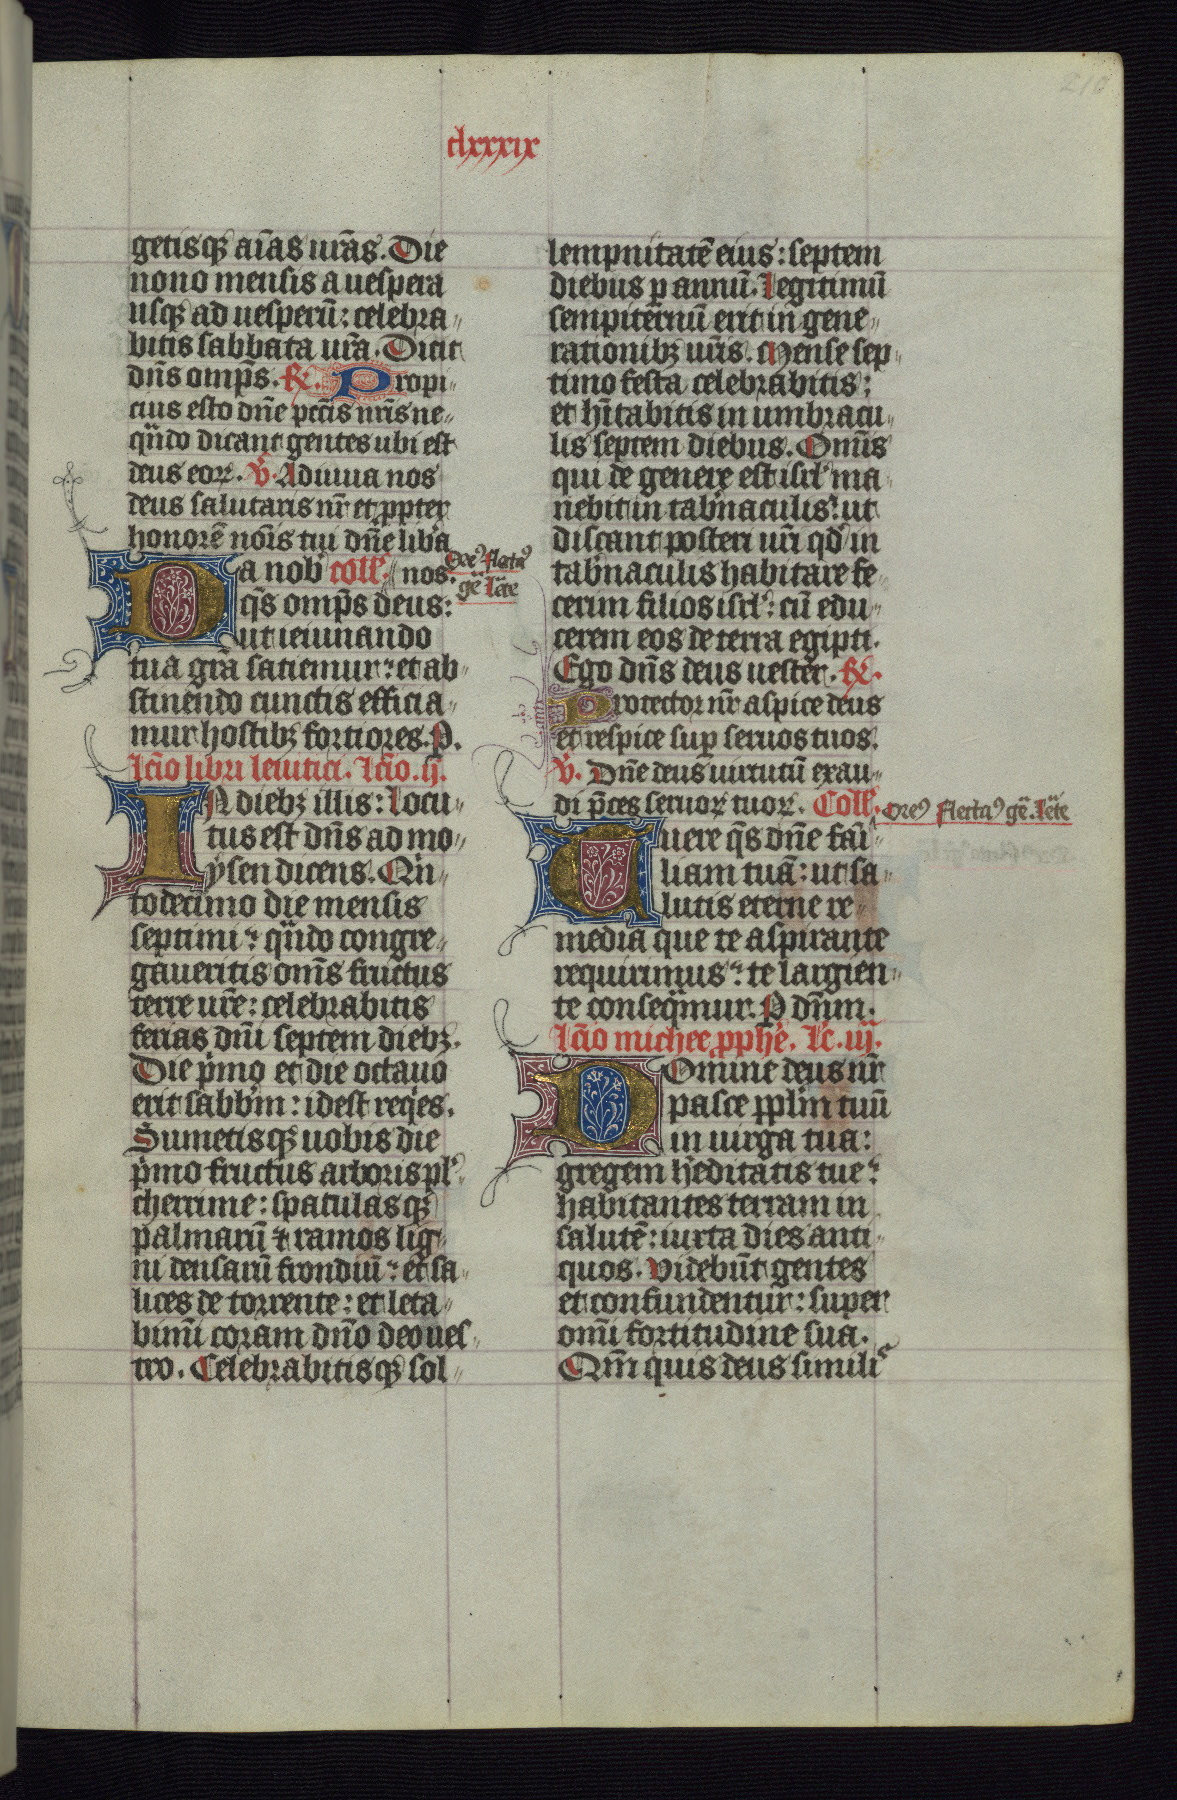 216
clxxxix
getisq; aīas ur̄as. Die
nono mensis a uespera
usq; ad uesperū: celebra〃
bitis sabbata ur̄a. Dicit
dn̄s omp̄s. R̷. Propi〃
cius esto dn̄e pcc̄is nr̄is ne〃
qn̄do dicant gentes ubi est
deus eoꝝ. V̄. Adiuua nos
deus salutaris nr̄ et ꝓpter
honorē nōis tui dn̄e lib'a
nos.
Da nob' coll'.
Ore9 flecta9
gē leuate
q̄s omp̄s deus:
ut ieiunando
tua gr̄a satiemur: et ab〃
stinendo cunctis efficia〃
mur hostibꝫ fortiores. P.
lc̄io libri leuitici. lc̄io. ij.
IN diebꝫ illis: locu〃
tus est dn̄s ad mo〃
ysen dicens. Qn̄〃
todecimo die mensis
septimi: qn̄do congre〃
gaueritis om̄s fructus
terre ur̄e: celebrabitis
ferias dn̄i septem diebꝫ.
Die p̄mo et die octauo
erit sabb'm: id est req'es.
Sumetisq; uobis die
p̄mo fructus arboris pl'〃
cherrime: spatulasq;
palmarū ⁊ ramos lig〃
ni densarū frondiū: et sa〃
lices de torrente: et leta〃
bimī coram dn̄o deo ues〃
tro. Celebrabitisq; sol〃
lempnitatē eius: septem
diebus p annū. Legitimū
sempiternū erit in gene〃
rationibꝫ ur̄is. Mense sep〃
timo festa celebrabitis:
et hītabitis in umbracu〃
lis septem diebus. Omīs
qui de genere est isrl' ma
nebit in tab'naculis: ut
discant posteri ur̄i qd' in
tab'naculis habitare fe〃
cerim filios isrl': cū edu〃
cerem eos de terra egipti.
Ego dn̄s deus uester. R̷.
Protector nr̄ aspice deus
et respice sup seruos tuos.
V̄. Dn̄e deus uirtutū exau〃
di p̄ces seruoꝝ tuoꝝ. Coll'.
Ore9 flecta9 gē. leuate
Tuere q̄s dn̄e fāi〃
liam tuā: ut sa〃
lutis eterne re〃
media que te aspirante
requirimus: te largien〃
te conseq'mur. P dn̄m.
lc̄io michee ꝓphē. lc̄. iij.
Domine deus nr̄
pasce ꝓpl'm tuū
in uirga tua:
gregem h'editatis tue:
habitantes terram in
salutē: iuxta dies anti〃
quos. Videbūt gentes
et confundentur: super
omī fortitudine sua.
Qm̄ quis deus simil'